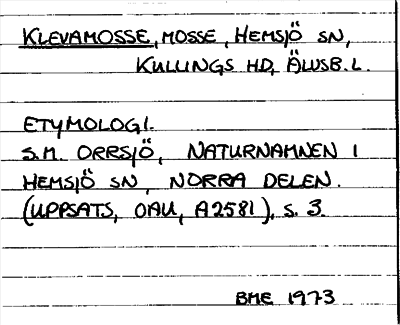 KLEVAMOSSE, MOSSE, HEMSJÖ SN,
KULLINGS HD, ÄLVSB. L.
ETYMOLOGI.
S.M. ORRSJÖ, NATURNAMNEN I
HEMSJÖ SN, NORRA DELEN.
(UPPSATS, OAU, A2581), S. 3.
BME 1973